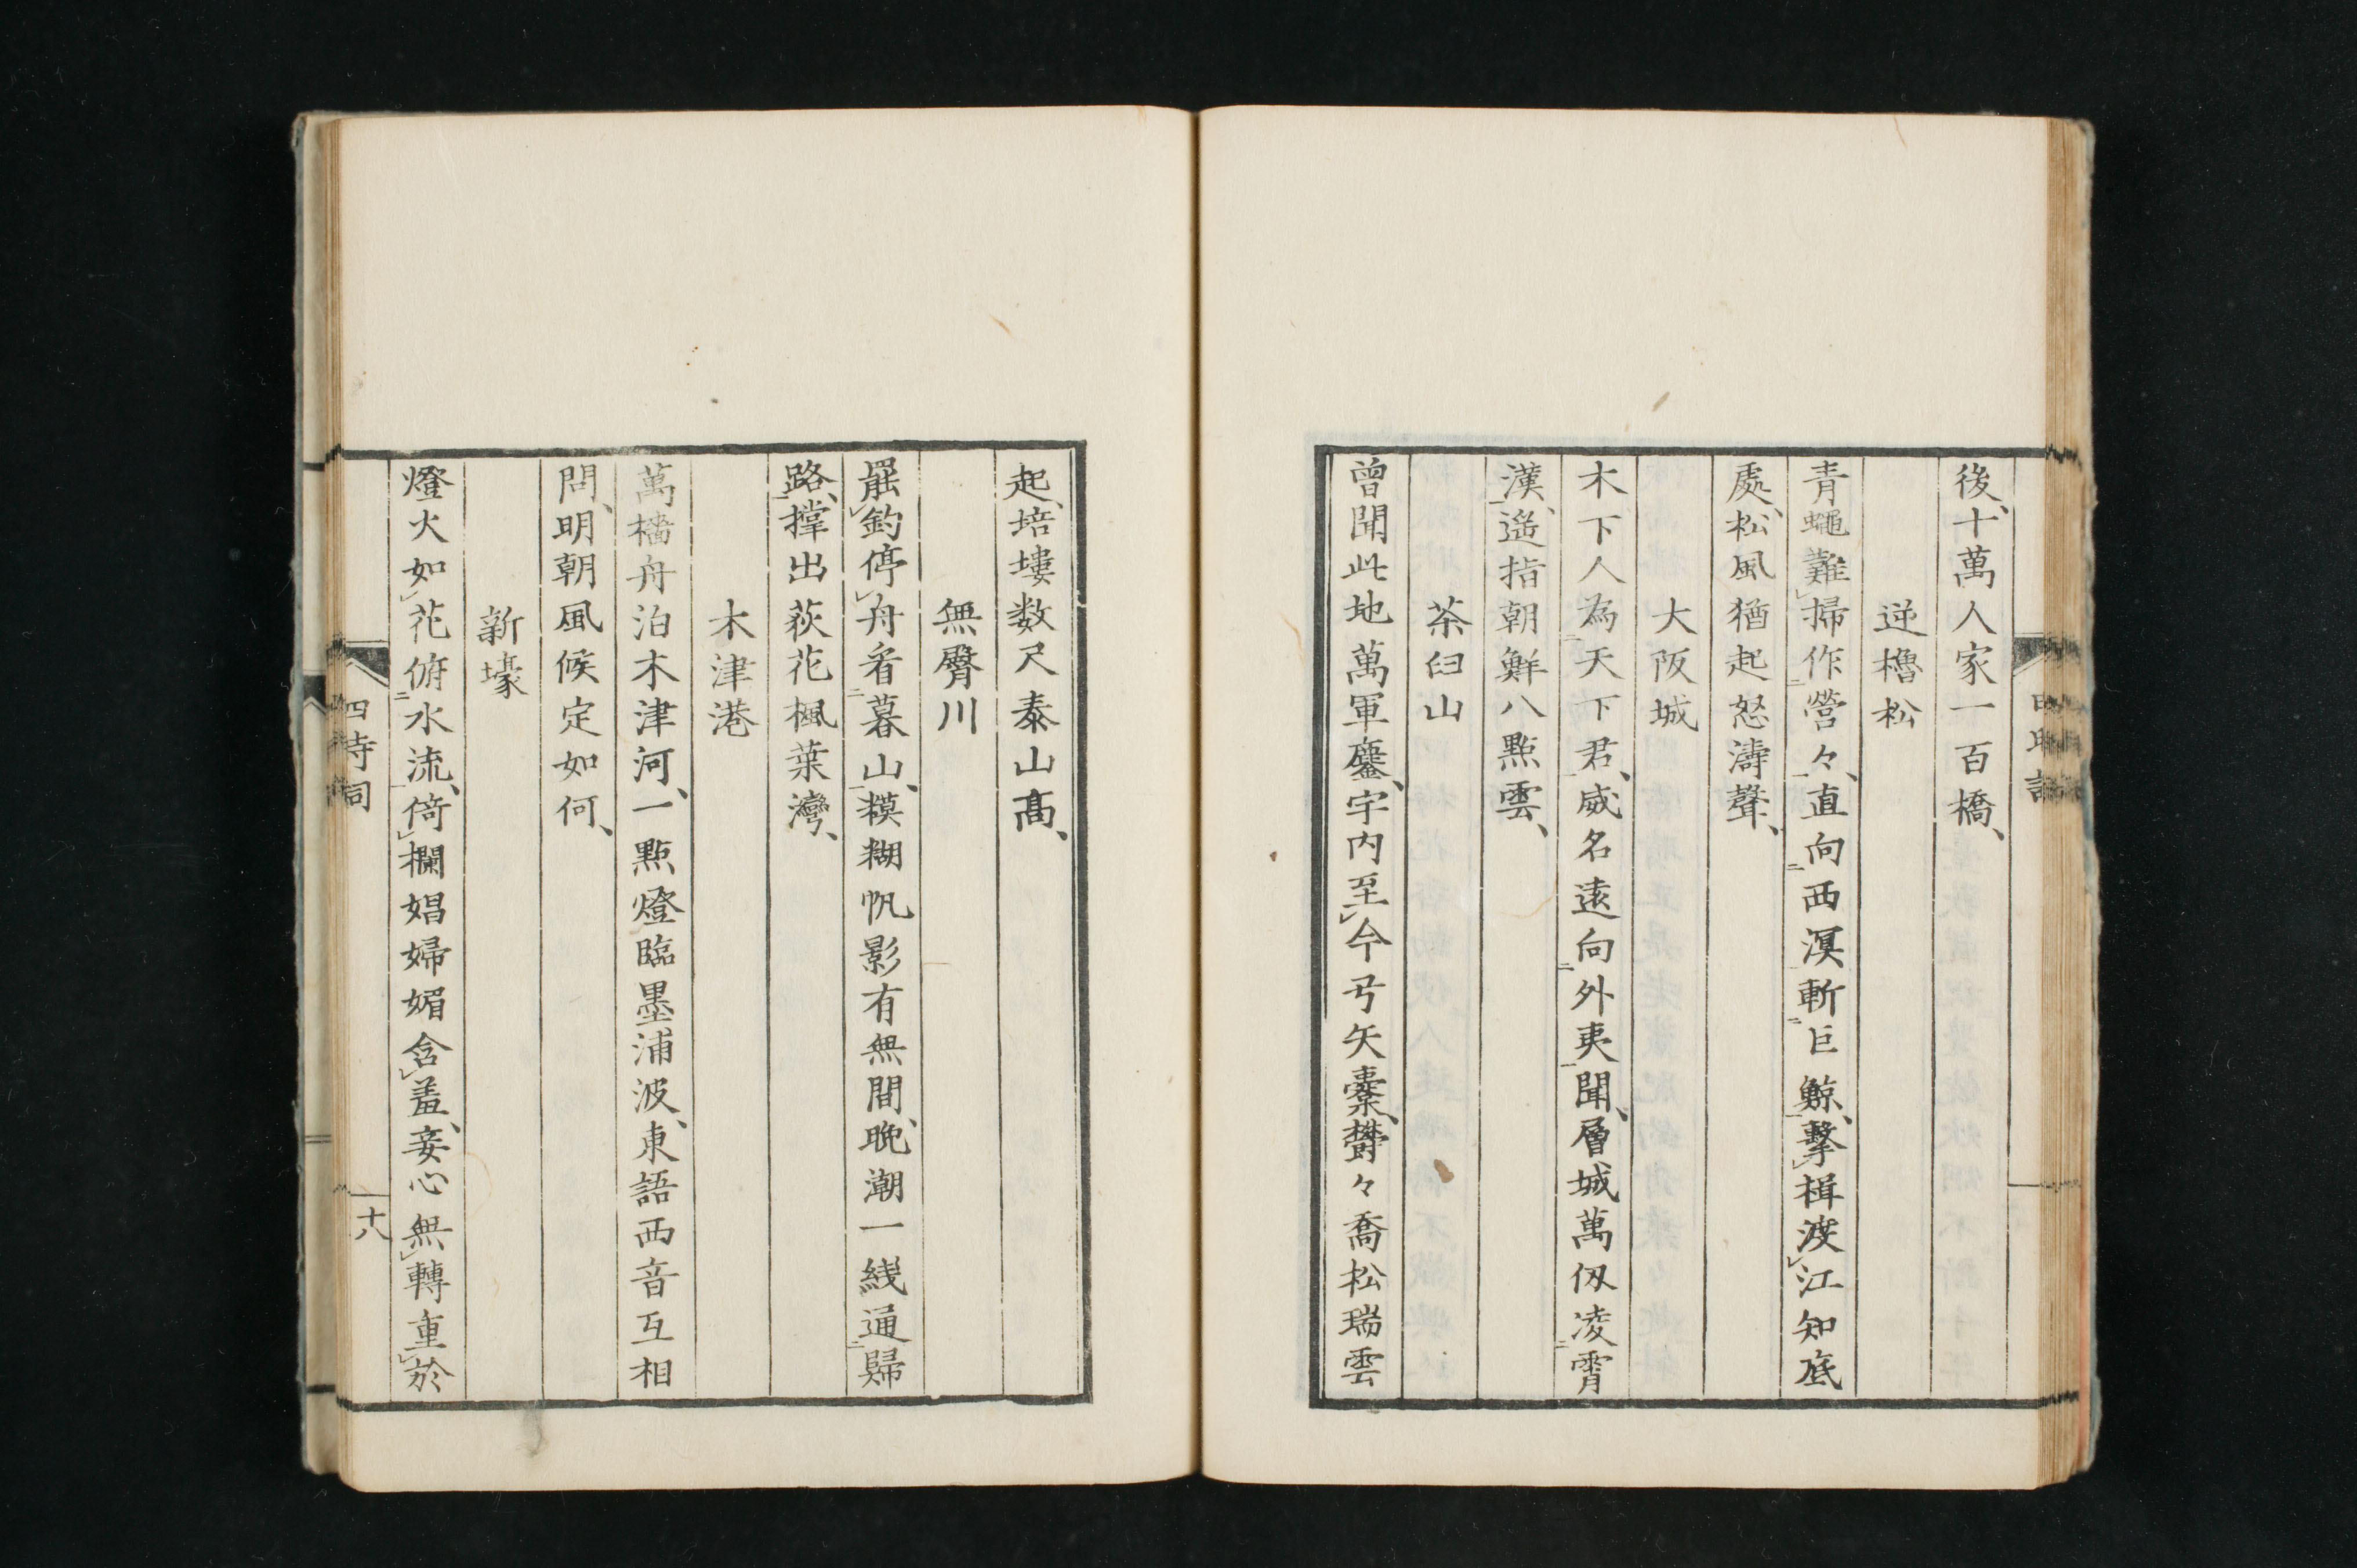 後、十萬人家一百橋、
逆櫓松
青蠅難掃作營々、直向西溟斬巨鯨、擊楫渡江知底
處、松風猶起怒濤聲、
大阪城
木下人為天下君、威名遠向外夷聞、層城萬仭凌霄
漢、遥指朝鮮八點雲、
茶臼山
曾聞此地萬軍鏖、宇内至今弓矢櫜、欝々喬松瑞雲
起、培塿数尺泰山髙、
無臀川
罷釣停舟看暮山、糢糊帆影有無間、晚潮一綫通歸
路、撑出荻花楓葉灣、
木津港
萬檣舟泊木津河、一點燈臨墨浦波、東語西音互相
問、明朝風候定如何、
新壕
燈火如花俯水流、倚欄娼婦媚含羞、妾心無轉重於
四時詞
十八